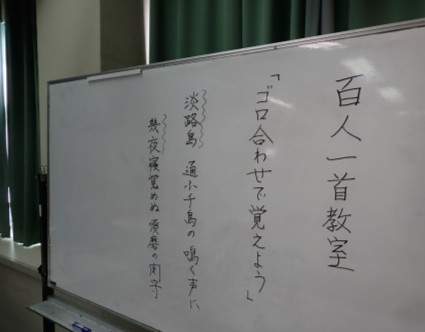 百人一首教室
「ゴロ合わせで覚えよう」
淡路島 通小千鳥の鳴く声に
幾夜寝覚めぬ 須磨の関守